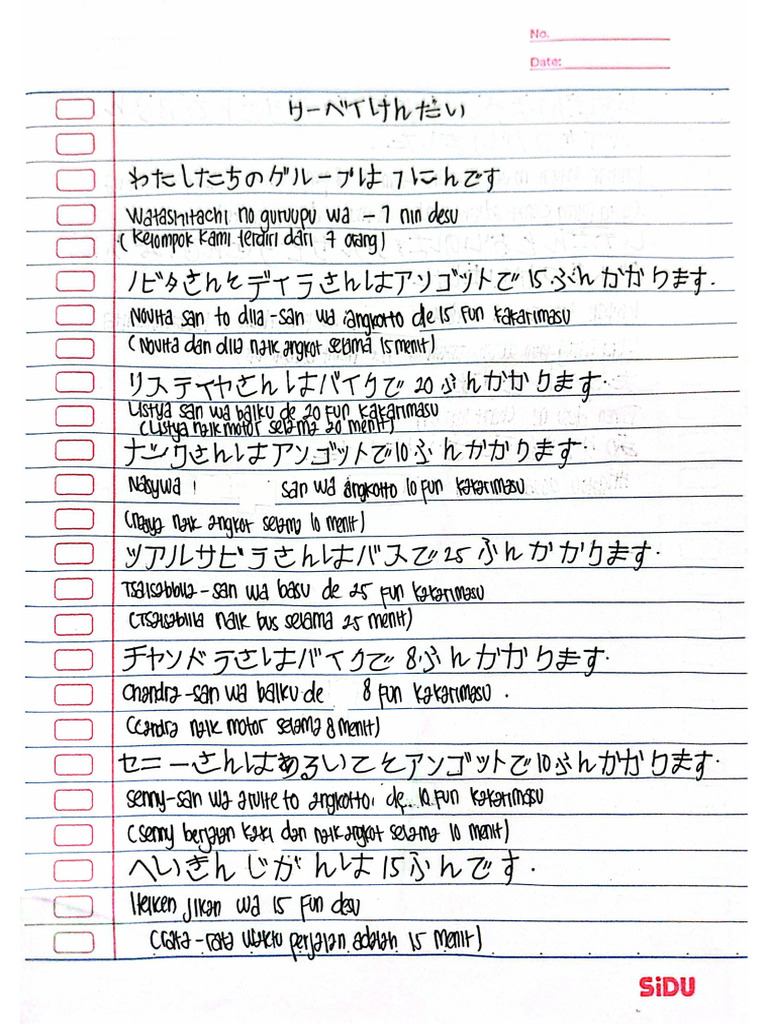 No.
Date:
サーベイけんだい
わたしたちのグループは 7 にんです
Watashitachi no guruupu wa - 7 nin desu
( Kelompok kami terdiri dari 7 orang)
ノビタさんとディラさんはアンゴットで 15 ぷんかかります.
Novita san to dila-san wa angkotto de 15 fun kakarimasu
( Novita dan dila naik angkot selama 15 menit)
リスティヤさんはバイクで 20 ぷんかかります.
Listya san wa baiku de 20 fun kakarimasu
(Listya naik motor selama 20 menit)
ナシワさんはアンゴットで10ぷんかかります.
Nasywa san wa angkotto 10 fun kakarimasu
(nasya naik angkot selama 10 menit)
ツアルサビラさんはバスで25 ぷんかかります.
Tsalsabbila-san wa basu de 25 fun kakarimasu
(Tsalsabila naik bus selama 25 menit)
チャンドラさんはバイクで 8ぷんかかります.
Chandra-san wa baiku de 8 fun kakarimasu.
(candra naik motor selama 8 menit)
セニーさんはあるいてとアンゴットで10ぷんかかります.
senny-san wa aruite to angkotto de 10 fun kakarimasu
(senny berjalan kaki dan naik angkot selama 10 menit)
へいきんじがんは 15 ぷんです.
Heiken jikan wa 15 fun desu
(rata-rata waktu perjalan adalah 15 menit)
SiDU